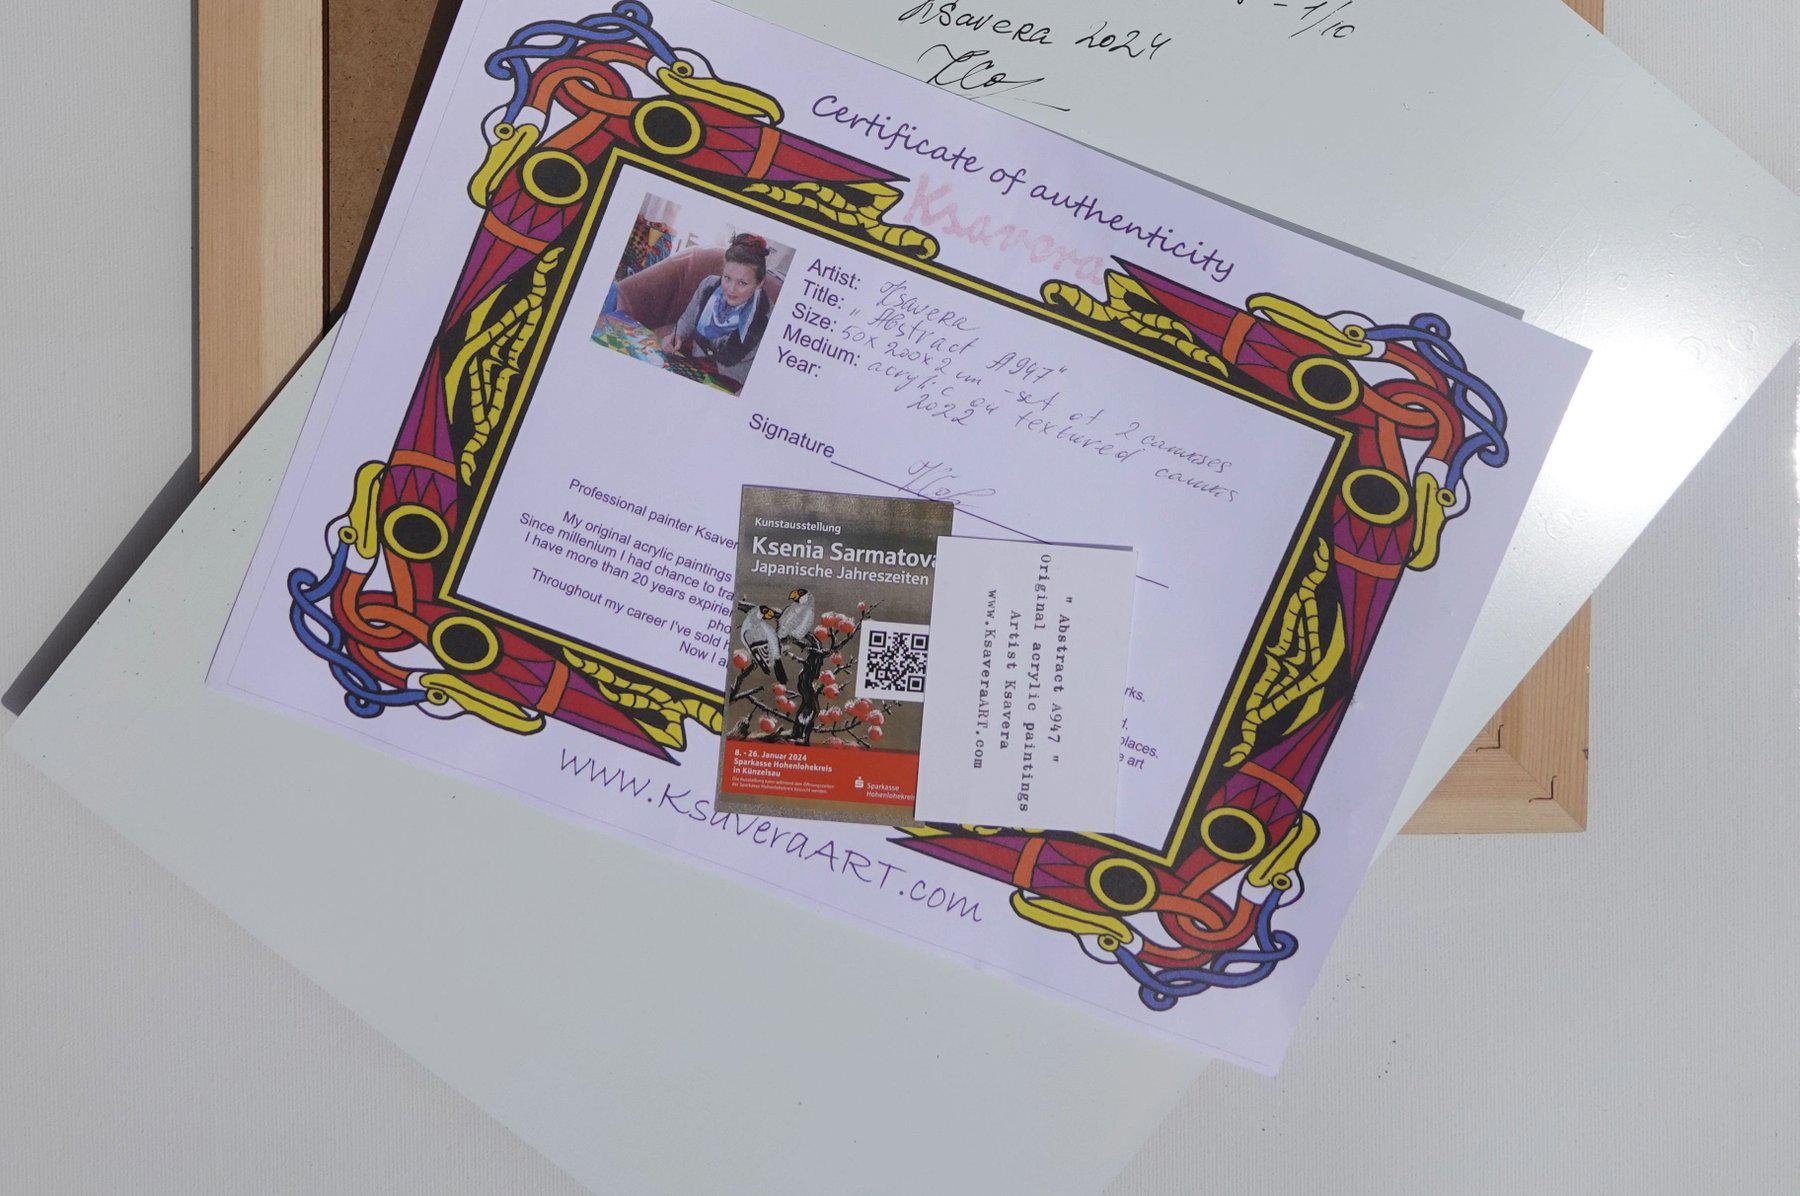 - 1/10
Ksavera 2024
Certificate of authenticity
Ksavera
Artist: Ksavera
Title: "Abstract A947"
Size: 50x200x2 cm - set of 2 canvases
Medium: acrylic on textured canvas
Year: 2022
Signature
Professional painter Ksaver
My original acrylic paintings
Since millenium I had chance to tra
I have more than 20 years expirie
pho
Throughout my career I've sold h
Now I a
rks.
places.
e art
Kunstausstellung
Ksenia Sarmatova
Japanische Jahreszeiten
8. - 26. Januar 2024
Sparkasse Hohenlohekreis
in Künzelsau
Die Ausstellung kann während den Öffnungszeiten
der Sparkasse Hohenlohekreis besucht werden.
Sparkasse
Hohenlohekreis
" Abstract A947 "
Original acrylic paintings
Artist Ksavera
www.KsaveraART.com
www.KsaveraART.com